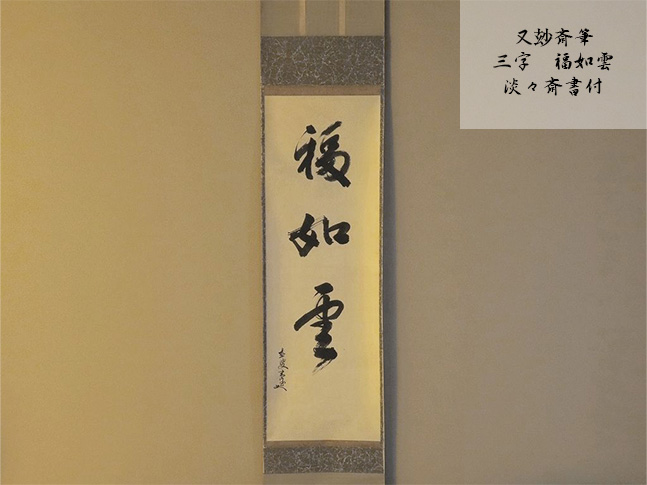 又玅斎筆
三字　福如雲
淡々斎書付
福如雲